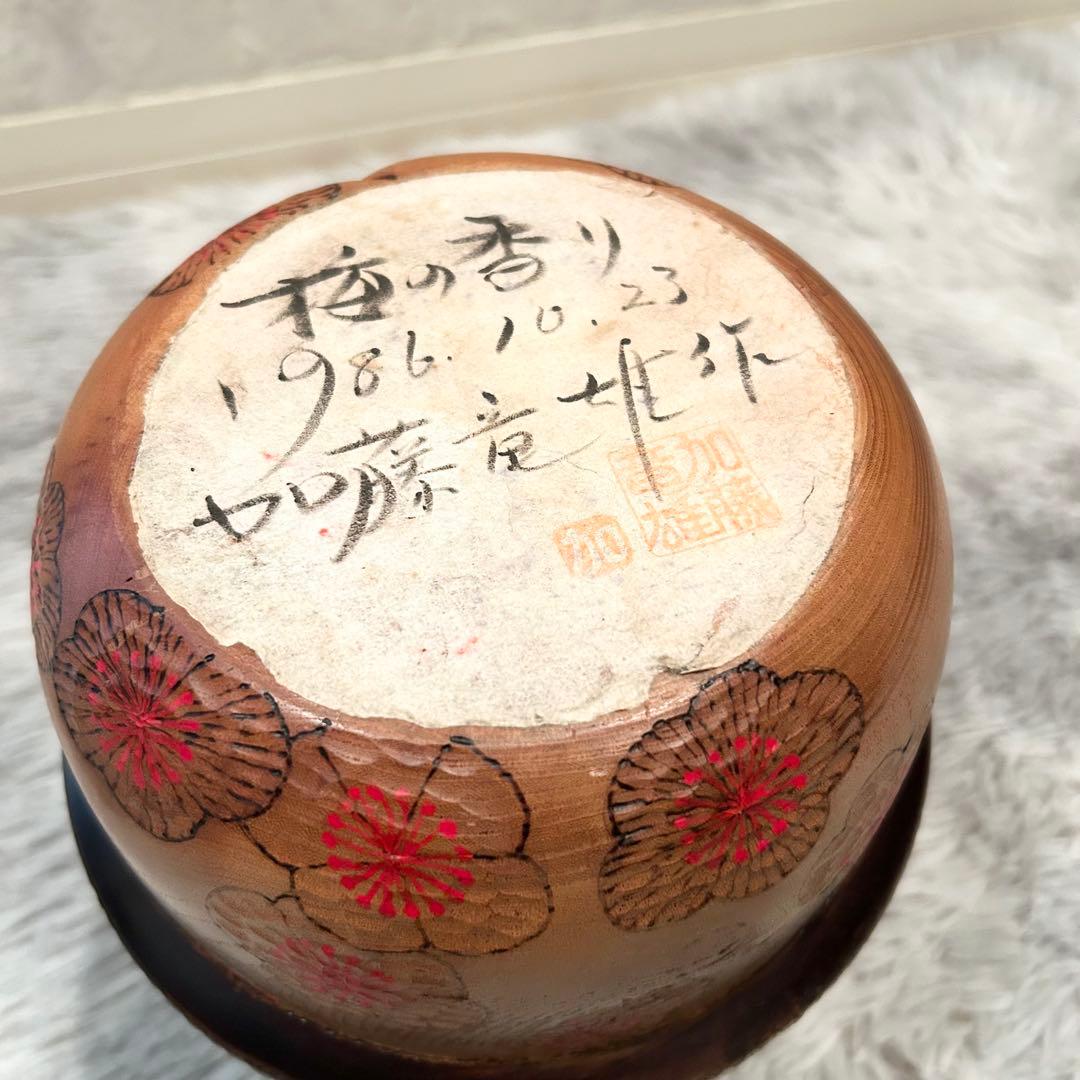 梅の香り
1986.10.23
加藤竜雄作
加藤
竜雄
加